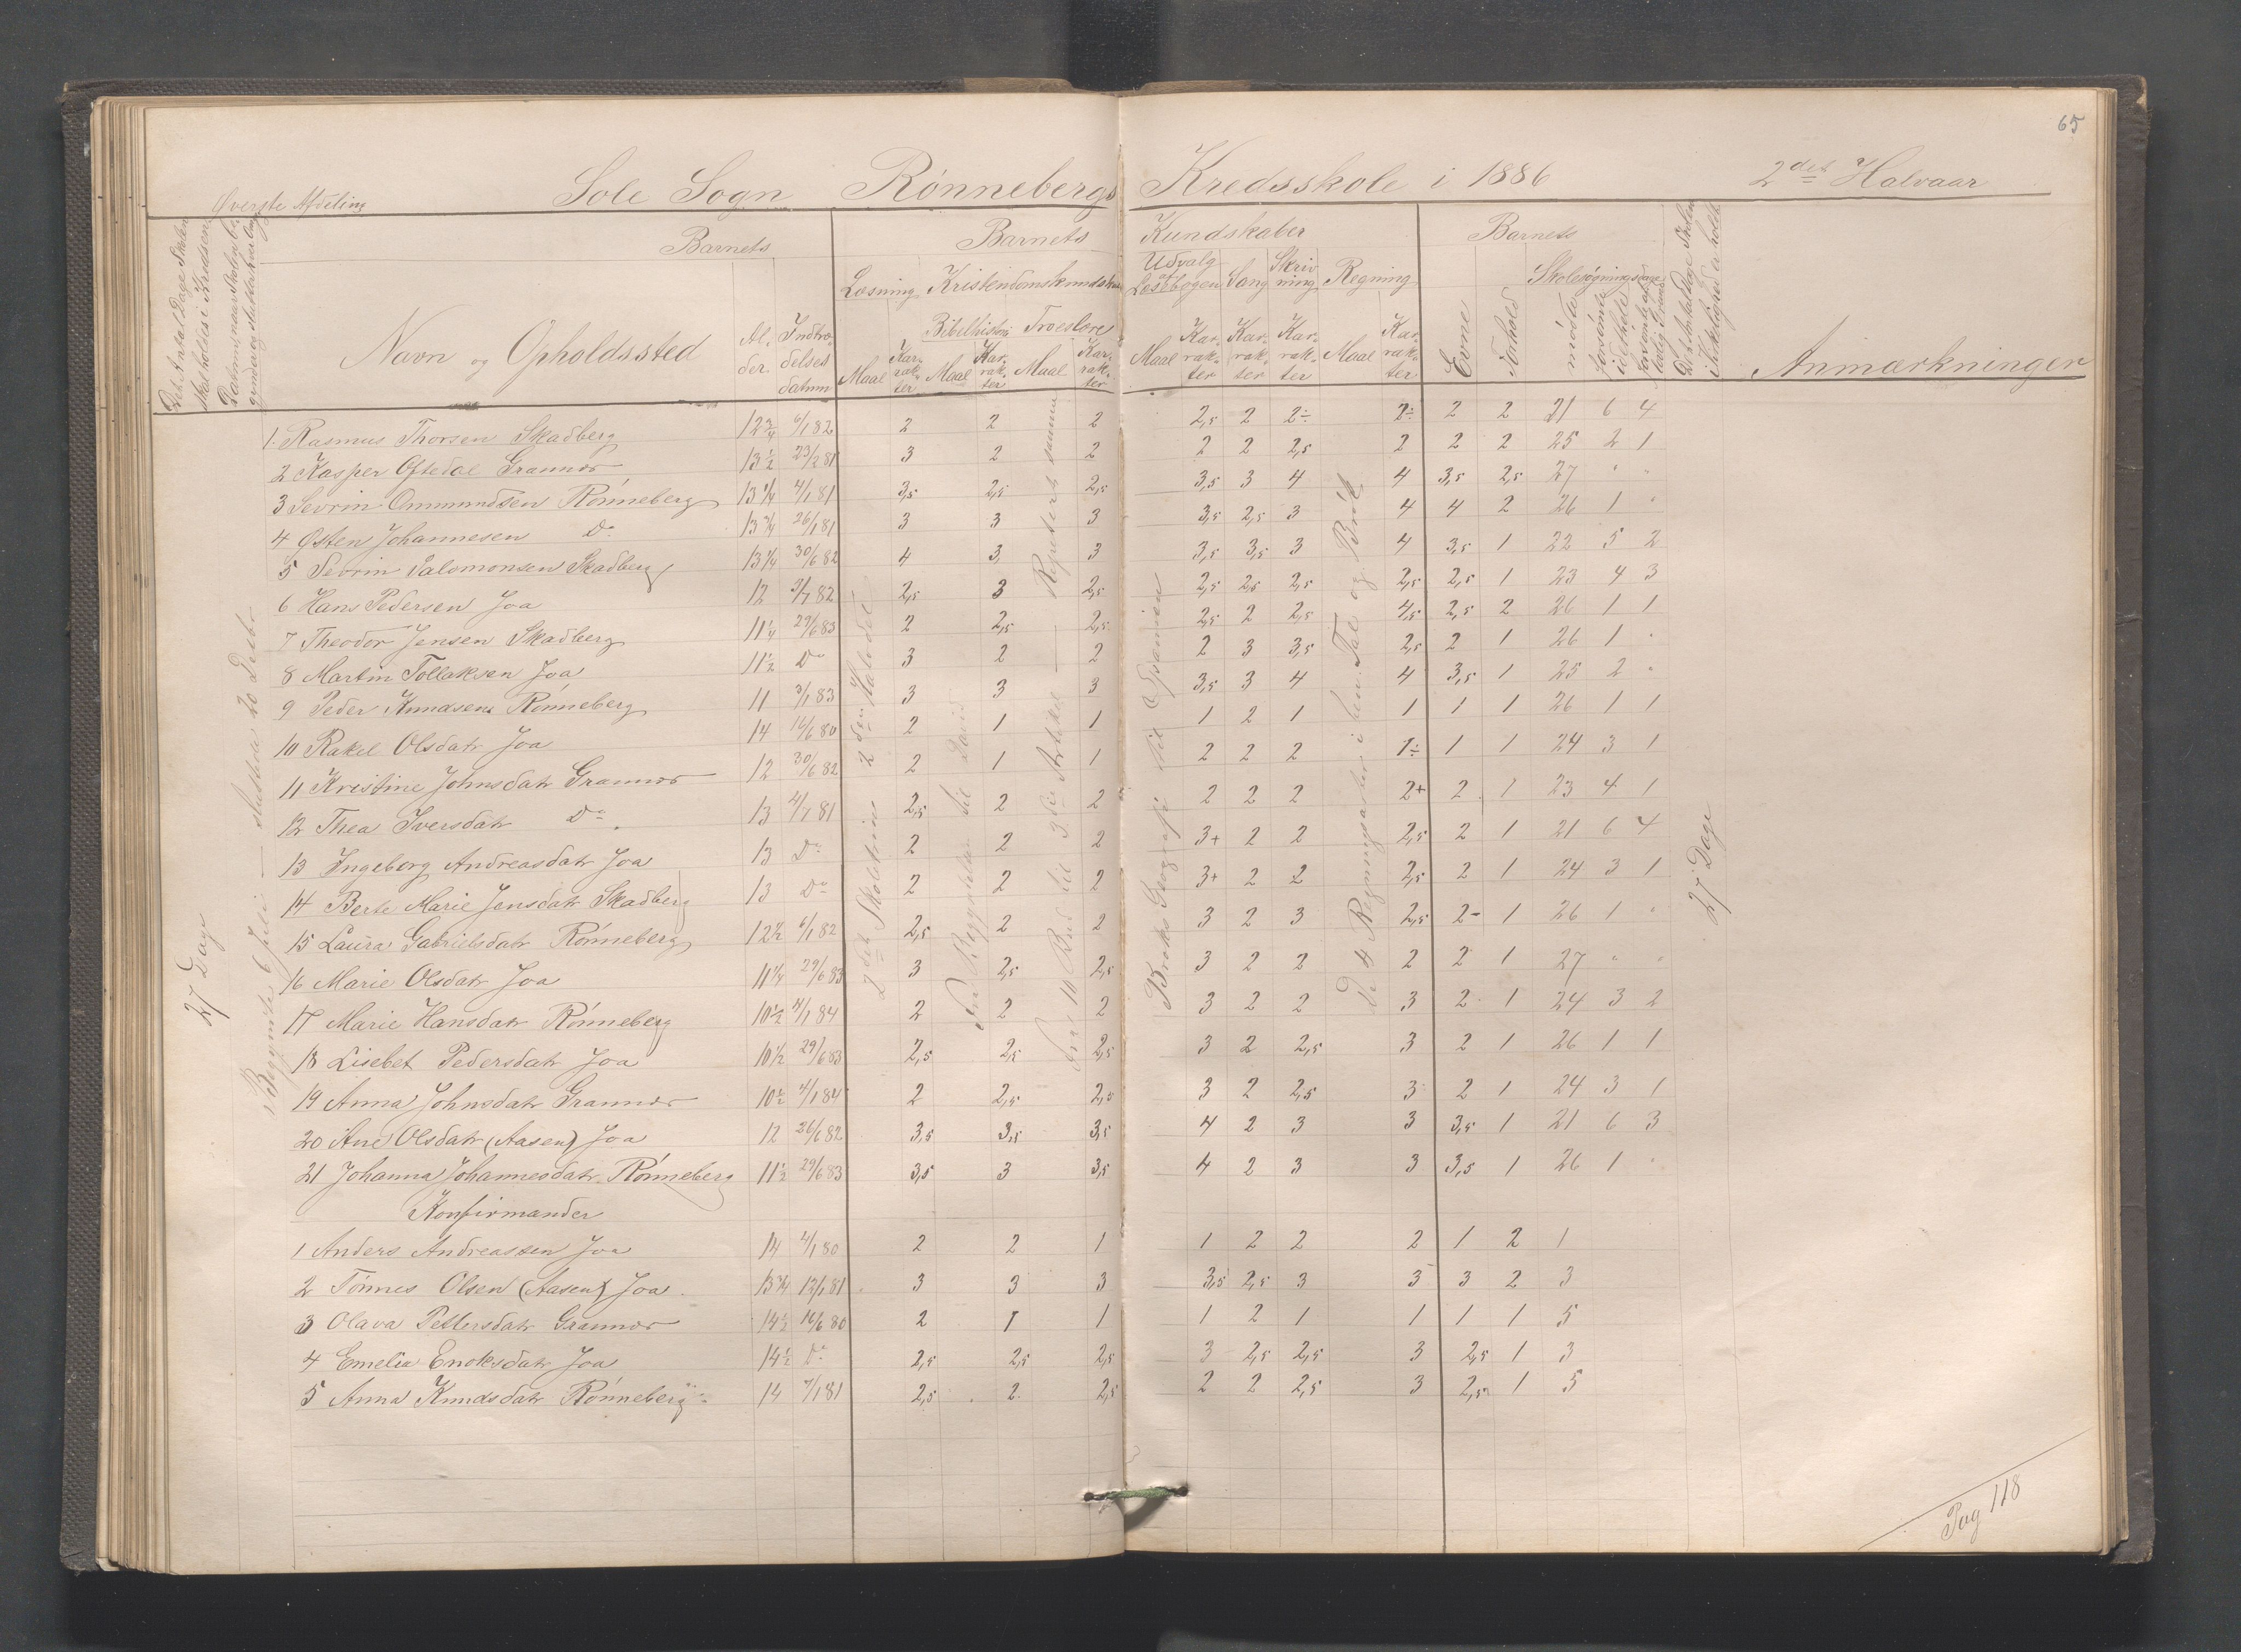 65
Sole Sogn Rønnebergs Kredsskole i 1886 2det Halvaar
Øverste Afdeling
Det Antal Dage Skolen skal holdes i Kredsen
Datum naar Skolen begynder og slutter
Barnets
Barnets Kundskaber
Barnets
Navn og Opholdssted
Alder.
Indtrædelses datum
Læsning
Kristendomskundskab
Bibelhistorie
Troeslære
Udvalg af Læsebogen
Sang
Skrivning
Regning
Maal
Karakter
Maal
Karakter
Maal
Karakter
Maal
Karakter
Karakter
Karakter
Maal
Karakter
Evne
Forhold
Skolesøgningsdage
mødte
forsømte i det hele
forsømte af lovlig Grund
Det Antal Dage Skolen i Virkelighed er holdt
Anmærkninger
1. Rasmus Thorsen Skadberg 12 3/4 6/1 82 2 2 2 2,5 2 2÷ 2÷ 2 2 21 6 4
2 Kasper Oftedal Grannes 13 1/2 23/2 81 3 2 2 2 2 2,5 2 2 2 25 2 1
3 Sevrin Ommundsen Rønneberg 13 1/4 4/1 81 3,5 2,5 2,5 3,5 3 4 4 3,5 2,5 27 " "
4 Østen Johannesen Do 13 3/4 26/1 81 3 3 3 3,5 2,5 3 4 4 2 26 1 "
5 Sevrin Salomonsen Skadberg 13 1/4 30/6 82 4 3 3 3,5 3,5 3 4 3,5 1 22 5 2
6 Hans Pedersen Joa 12 3/7 82 2,5 3 2,5 2,5 2,5 2,5 2,5 2,5 1 23 4 3
7 Theodor Jensen Skadberg 11 1/4 29/6 83 2 2,5 2,5 2,5 2 2,5 4,5 2,5 2 26 1 1
8 Martin Tollaksen Joa 11 1/2 Do 3 2 2 2 3 3,5 2,5 2 1 26 1 "
9 Peder Knudsen Rønneberg 11 3/1 83 3 3 3 3,5 3 4 4 3,5 1 25 2 "
10 Rakel Olsdatr Joa 14 16/6 80 2 1 1 1 2 1 1 1 1 26 1 1
11 Kristine Johnsdatr Grannes 12 30/6 82 2 1 1 2 2 2 1÷ 1 1 24 3 1
12 Thea Iversdatr Do 13 4/7 81 2,5 2 2 2 2 2 2+ 2 1 23 4 1
13 Ingeborg Andreasdatr Joa 13 Do 2 2 2 3+ 2 2 2,5 2 1 21 6 4
14 Berte Marie Jensdatr Skadberg 13 Do 2 2 2 3+ 2 2 2,5 2 1 24 3 1
15 Laura Gabrielsdatr Rønneberg 12 1/2 6/1 82 2,5 2 2 3 2 3 2,5 2- 1 26 1 "
16 Marie Olsdatr Joa 11 1/4 29/6 83 3 2,5 2,5 3 2 2 2 2 1 27 " "
17 Marie Hansdatr Rønneberg 10 1/2 4/1 84 2 2 2 3 2 2 3 2 1 24 3 2
18 Lisebet Pedersdatr Joa 10 1/2 29/6 83 2,5 2,5 2,5 3 2 2,5 3 2 1 26 1 1
19 Anna Johnsdatr Grannes 10 1/2 4/1 84 2 2,5 2,5 3 2 2,5 3 2 1 24 3 1
20 Ane Olsdatr (Aasen) Joa 12 26/6 82 3,5 3,5 3,5 4 2 3 3 3,5 1 21 6 3
21 Johanna Johannesdatr Rønneberg 11 1/2 29/6 83 3,5 3 3,5 4 2 3 3 3,5 1 26 1 "
Konfirmander
1 Anders Andreassen Joa 14 4/1 80 2 2 1 1 2 2 2 1 2 1
2 Tønnes Olsen (Aasen) Joa 13 3/4 13/1 81 3 3 3 3,5 2,5 3 3 3 2 3
3 Olava Pettersdatr Grannes 14 1/2 16/6 80 2 1 1 1 2 1 1 1 1 5
4 Emelia Enoksdatr Joa 14 1/2 Do 2,5 2,5 2,5 3 2,5 2,5 3 2,5 1 3
5 Anna Knudsdatr Rønneberg 14 7/1 81 2,5 2 2,5 2 2 2,5 3 2,5 1 5
27 Dage
Begyndte 6 Juli — sluttede 20 Debr
2det Skoletrin 2den Halvdel
til David
Fra 10 Bud til 3die Artikel — Repetert samme
Broks Geografi til Spanien
De 4 Regningsarter i hen. Tal og Brøk
27 Dage
Pag 118